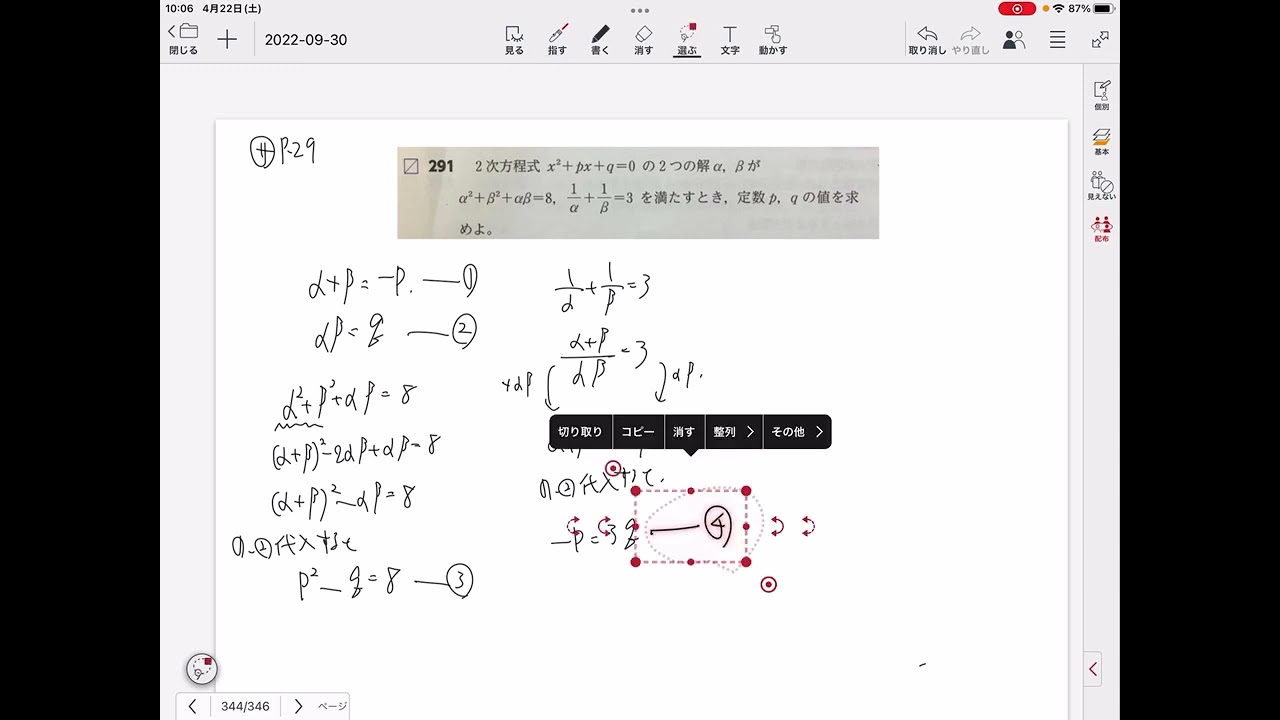 10:06 4月22日(土)
87%
閉じる
2022-09-30
見る
指す
書く
消す
選ぶ
文字
動かす
取り消し
やり直し
個別
基本
見えない
配布
P.29
291 2次方程式 x²+px+q=0 の2つの解 α, β が
α²+β²+αβ=8, 1/α+1/β=3 を満たすとき, 定数 p, q の値を求
めよ。
α+β=-p. ―①
αβ=q ―②
α²+β²+αβ=8
(α+β)²-2αβ+αβ=8
(α+β)²-αβ=8
①.②代入すると
p²-q=8 ―③
1/α+1/β=3
(α+β)/(αβ)=3
×αβ
αβ.
切り取り コピー 消す 整列 その他
①.②代入すると.
-p=3q ―④
344/346 ページ